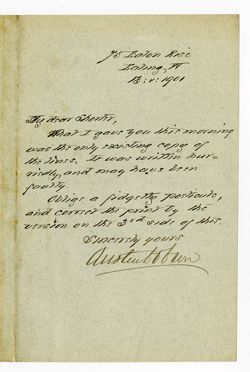 75 Eaton Rise
Ealing, W
13: v: 1901
My dear Shorter,
What I gave you this morning
was the only existing copy of
the lines. It was written hur-
riedly, and may have been
faulty.
Oblige a fidgetty postcule,
and correct the print by the
version on the 3rd side of this.
Sincerely yours
Austin Dobson